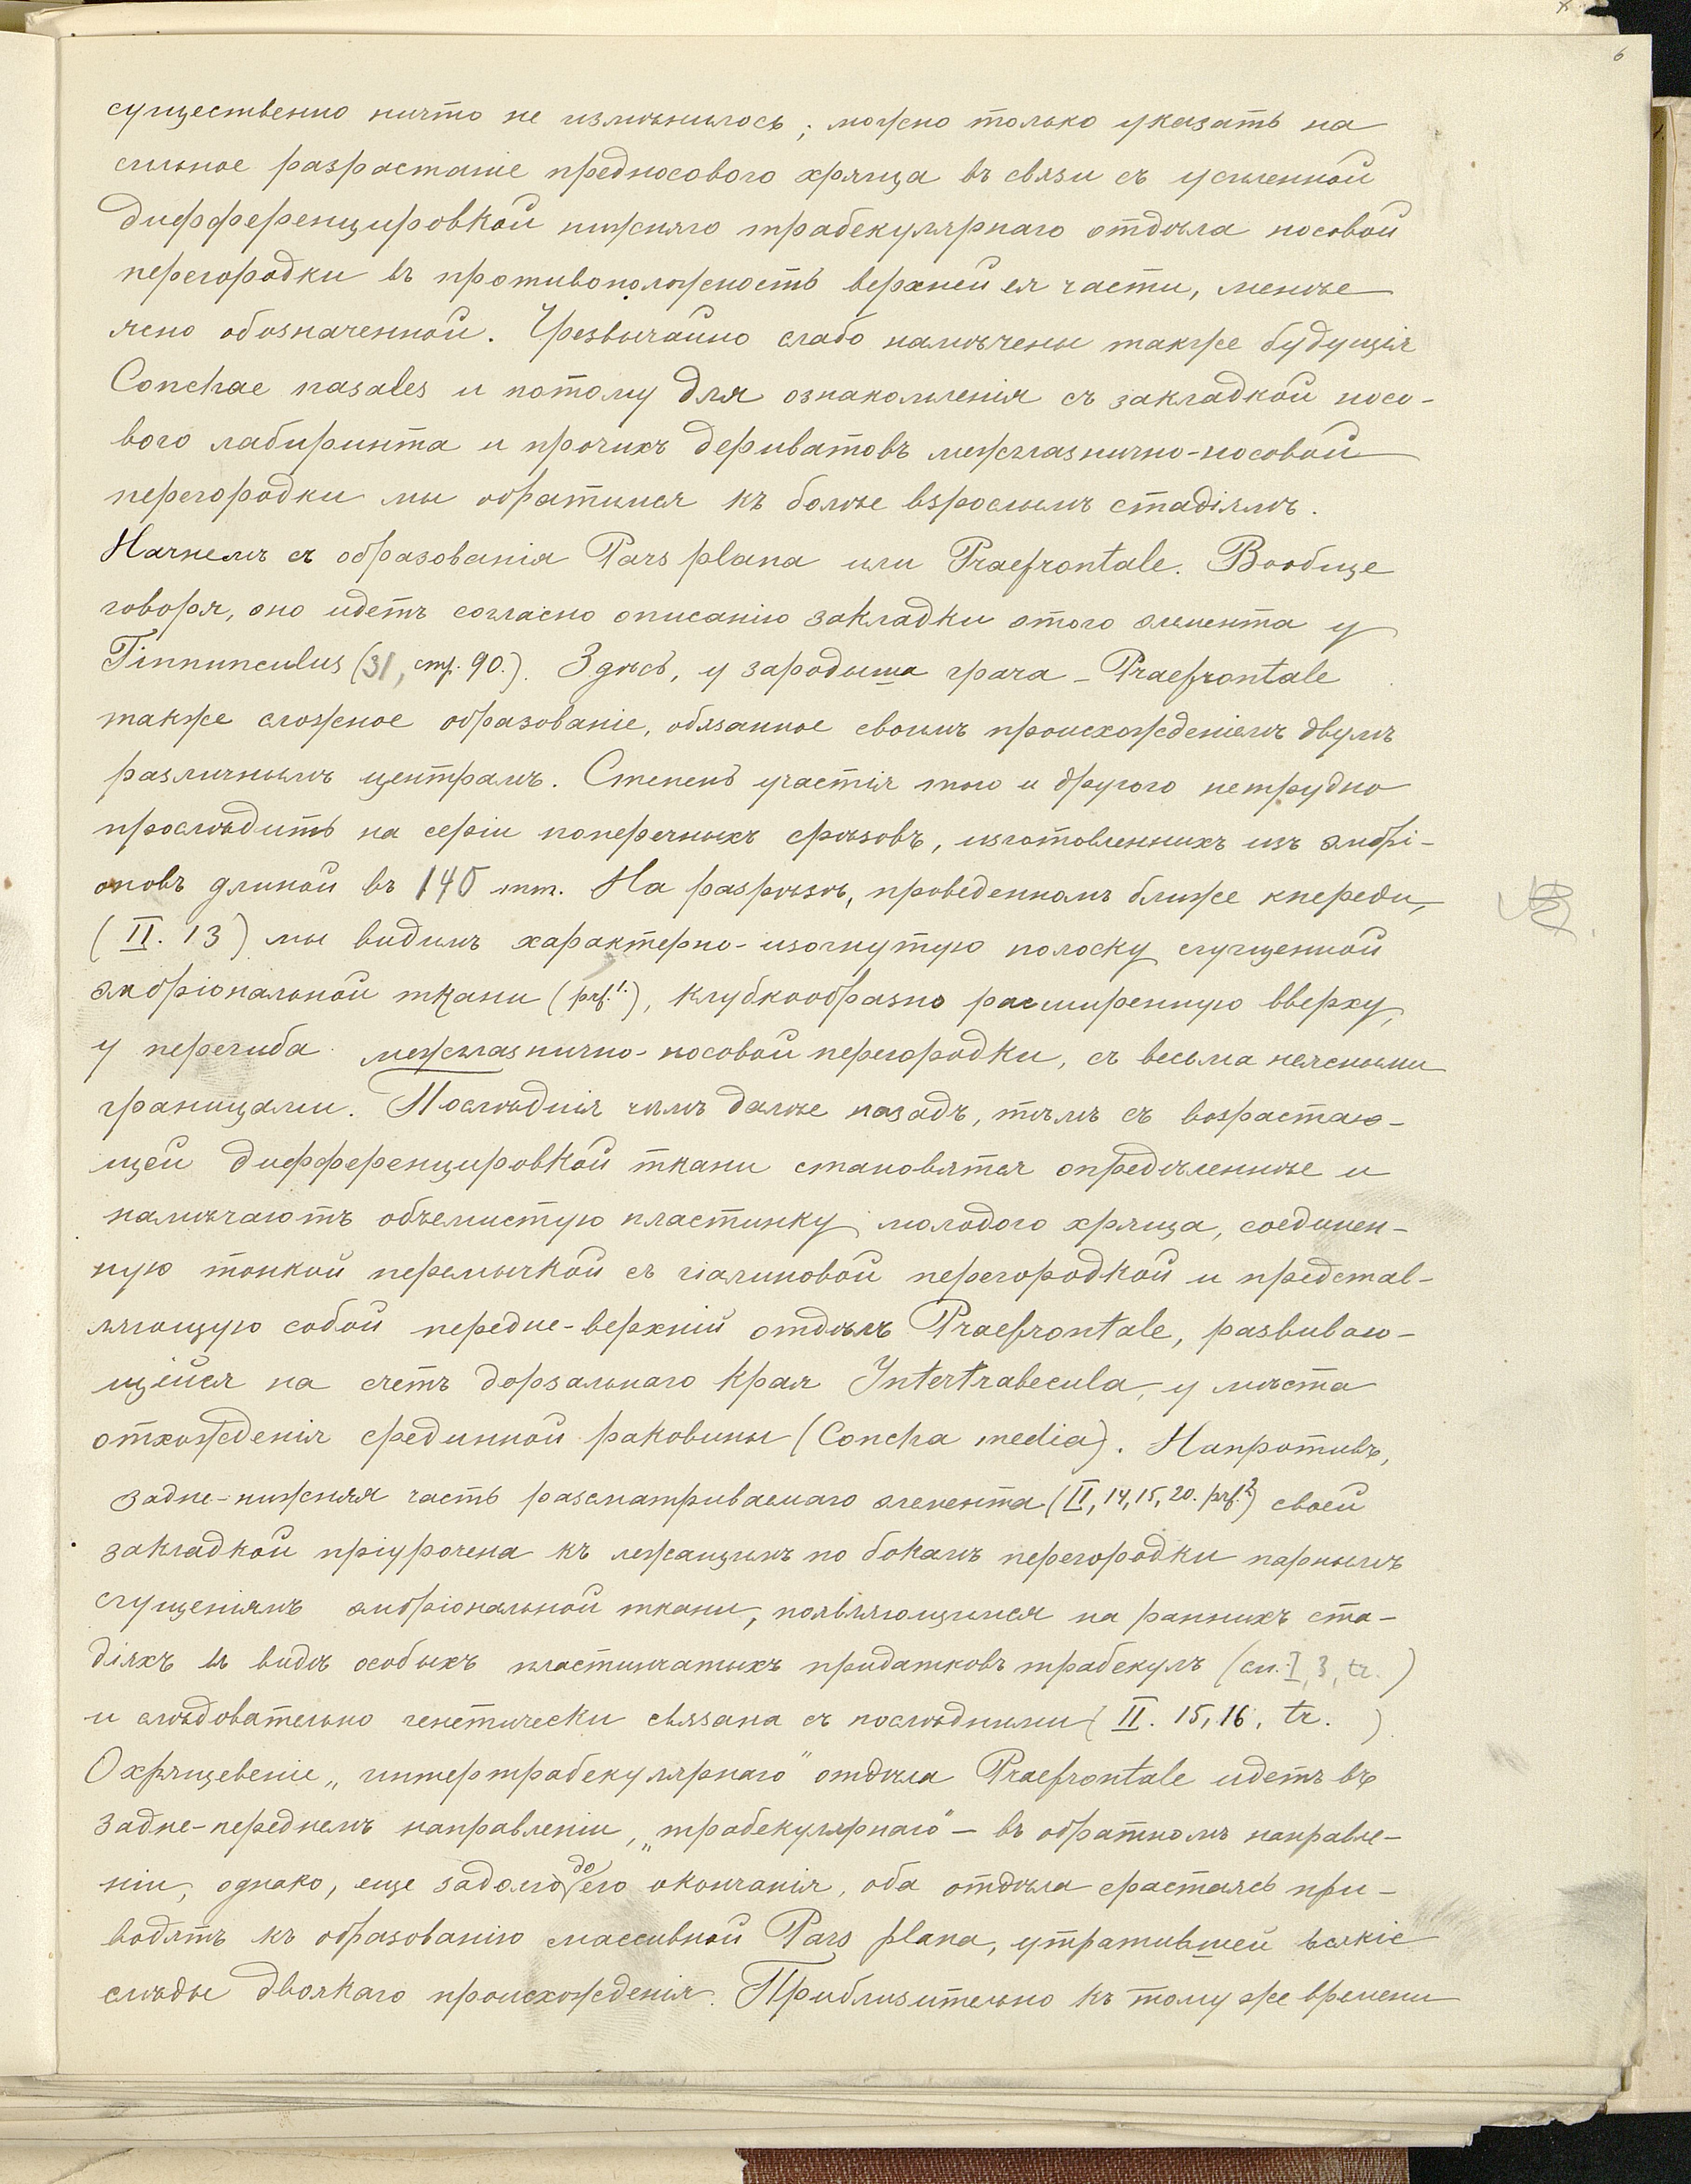 6
существенно ничто не измѣнилось; можно только указать на
сильное разрастаніе предносового хряща въ связи съ усиленной
дифференцировкой нижняго трабекулярнаго отдѣла носовой
перегородки въ противоположность верхней ея части, менѣе
ясно обозначенной. Чрезвычайно слабо намѣчены также будущія
Conchae nasales и потому для ознакомленія съ закладкой носо-
вого лабиринта и прочихъ дериватовъ межглазнично-носовой
перегородки мы обратимся къ болѣе взрослымъ стадіямъ.
Начнемъ съ образованія Pars plana или Praefrontale. Вообще
говоря, оно идетъ согласно описанію закладки этого элемента у
Tinnunculus (31, стр. 90.). Здѣсь, у зародыша грача - Praefrontale
также сложное образованіе, обязанное своимъ происхожденіемъ двумъ
различнымъ центрамъ. Степень участія того и другого нетрудно
прослѣдить на серіи поперечныхъ срѣзовъ, изготовленныхъ изъ эмбрі-
оновъ длиной въ 140 mm. На разрѣзѣ, проведенномъ ближе кпереди,
(II. 13) мы видимъ характерно-изогнутую полоску сгущенной
эмбріональной ткани (prf.1.), клубкообразно расширенную вверху,
у перегиба межглазнично-носовой перегородки, съ весьма неясными
границами. Послѣднія чѣмъ далѣе назадъ, тѣмъ съ возрастаю-
щей дифференцировкой ткани становятся опредѣленнѣе и
намѣчаютъ объемистую пластинку молодого хряща, соединен-
ную тонкой перемычкой съ гіалиновой перегородкой и представ-
ляющую собой передне-верхній отдѣлъ Praefrontale, развиваю-
щійся на счетъ дорзальнаго края Intertrabecula, у мѣста
отхожденія срединной раковины (Concha media). Напротивъ,
задне-нижняя часть разсматриваемаго элемента (II, 14, 15, 20. prf.2) своей
закладкой пріурочена къ лежащимъ по бокамъ перегородки парнымъ
сгущеніямъ эмбріональной ткани, появляющимся на раннихъ ста-
діяхъ въ видѣ особыхъ пластинчатыхъ придатковъ трабекулъ (см. I, 3, tr.)
и слѣдовательно генетически связана съ послѣдними (II. 15, 16, tr. )
Охрящевеніе „интертрабекулярнаго" отдѣла Praefrontale идетъ въ
задне-переднемъ направленіи, „трабекулярнаго" - въ обратномъ направле-
ніи, однако, еще задолго до его окончанія, оба отдѣла срастаясь при-
водятъ къ образованію массивной Pars plana, утратившей всякіе
слѣды двоякаго происхожденія. Приблизительно къ тому же времени